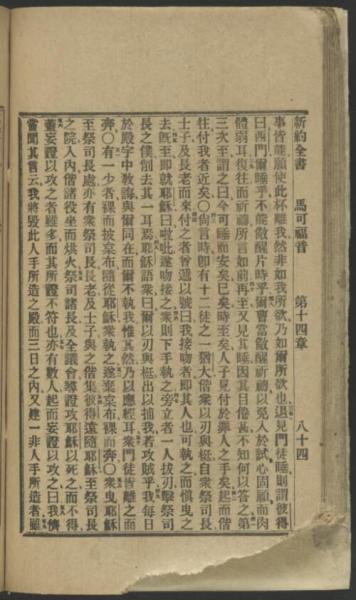 新約全書 馬可福音 第十四章 八十四
事皆能願使此杯離我然非如我所欲乃如爾所欲也退見門徒睡則謂彼得
曰西門爾睡乎不能儆醒片時乎爾曹當儆醒祈禱以免入於試心固願而肉
體弱耳復往而祈禱所言如前再至又見其睡因其目倦甚不知何以答之第
三次至謂之曰今可睡而安矣已矣時至矣人子見付於罪人之手矣起而偕
往付我者近矣〇尚言時卽有十二徒之一猶大偕衆以刃與梃自衆祭司長
士子及長老而來付之者曾遞以號曰我接吻者卽其人也可執之而愼曳之
去旣至卽就耶穌曰啦吡遂吻接之衆則下手執之旁立者一人拔刃擊祭司
長之僕削去其一耳焉耶穌語衆曰爾以刃與梃出以捕我若攻賊乎我每日
於殿宇中敎誨與爾同在而爾不執我惟其然乃以應經耳衆門徒皆離之而
奔〇有一少者裸而披枲布隨從耶穌衆執之遂棄枲布裸而奔〇衆曳耶穌
至祭司長處亦有衆祭司長長老及士子與之偕集彼得遠隨耶穌至祭司長
之院入內偕諸役坐而烘火祭司諸長及全議會導證攻耶穌以死之而不得
蓋妄證以攻之者雖多而其所證不符也亦有數人起而妄證以攻之曰我儕
嘗聞其言云我將毀此人手所造之殿而三日之內又建一非人手所造者雖